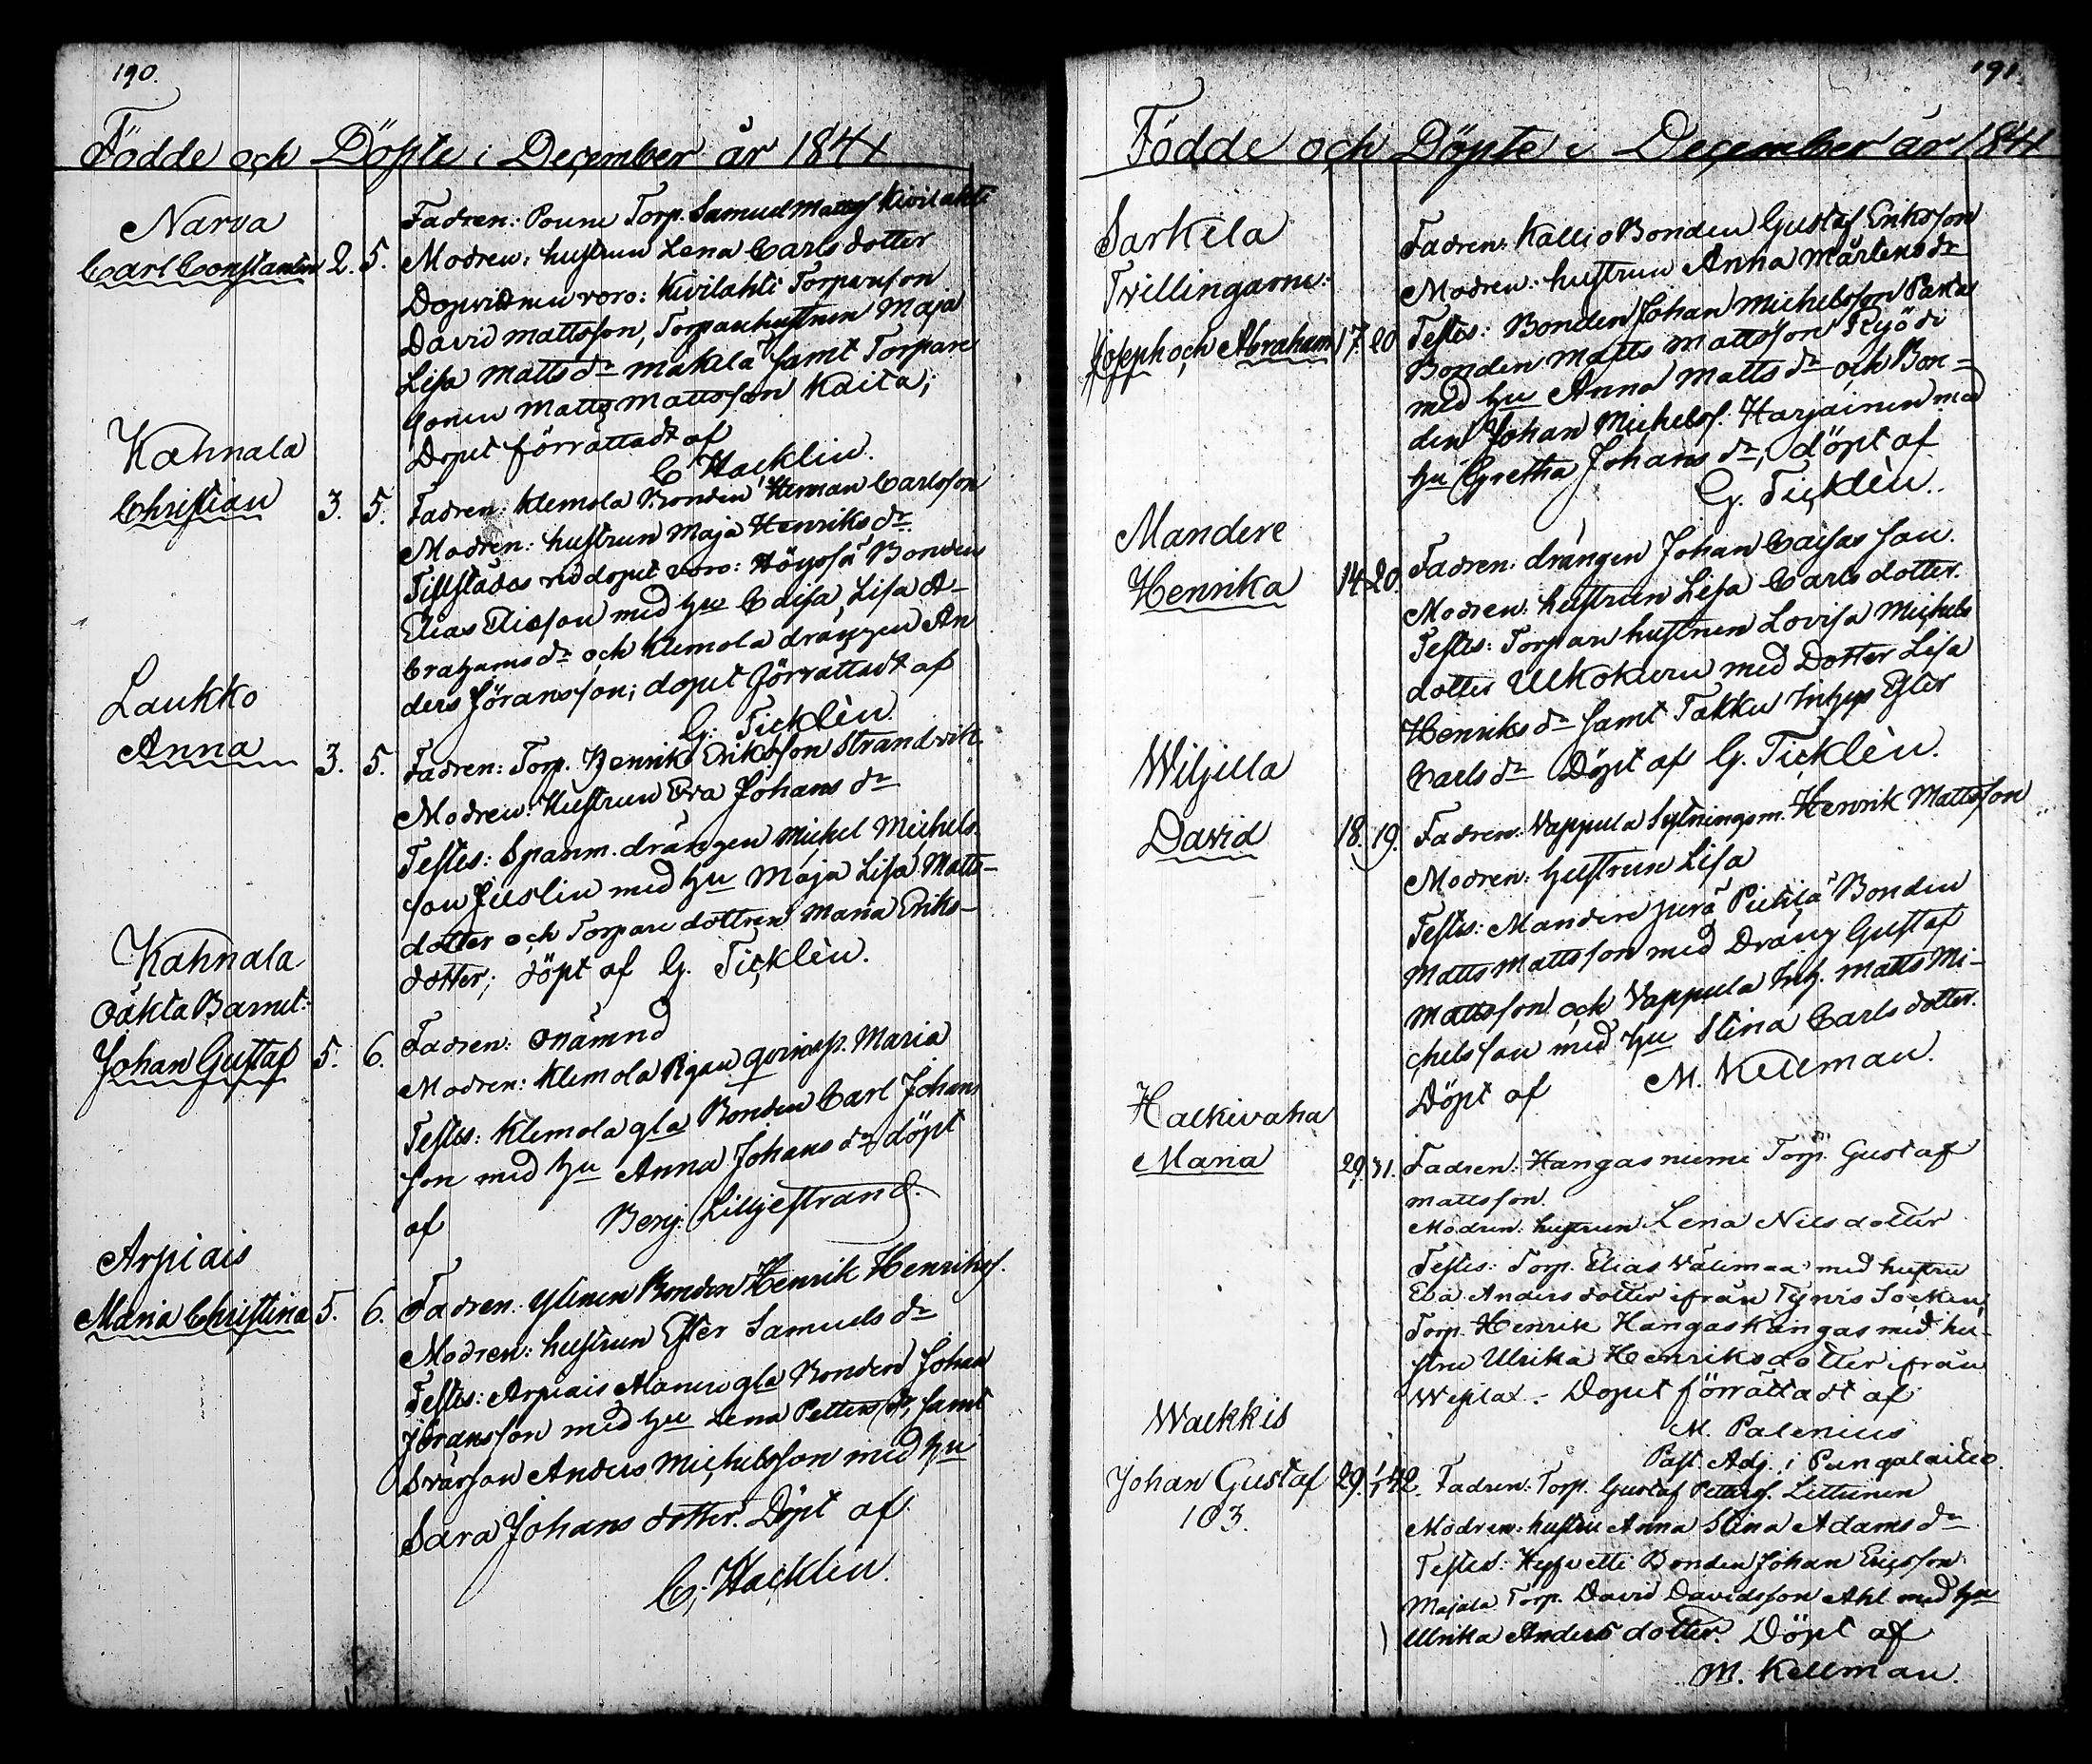 190.
Födde och Döpte i December år 1841
Narva
Carl Constantin 2. 5.
Fadren: Poune Torp. Samuel Mattsf Kivilahti
Modren: hustrun Lena Carls dotter
Dopvidnen voro: Kivilahti Torparson
David Mattsson, Torparehustrun Maja
Lisa Matts dr Mäkilä samt Torpare
sonen Matts Mattsson Kaita;
Dopet förrättadt af
C. Hacklin.
Kahnala
Christian 3. 5.
Fadren: Klemola Bonden Herman Carlsson
Modren: hustrun Maja Henriks dr
Tillstädes vid dopet voro: Bonden
Elias Eliasson med hu Caisa, Lisa A-
brahams dr och Klemola drängen An
ders Jöransson; dopet förrättadt af
G. Ticklèn.
Laukko
Anna 3. 5.
Fadren: Torp. Henrik Eriksson Strandvik
Modren: Hustrun Eva Johans dr
Testes: Spanm. drängen Michel Michels
son Juslin med hu Maja Lisa Matts-
dotter och Torpare dottren Maria Eriks-
dotter; döpt af G. Ticklèn.
Kahnala
oäkta Barnet:
Johan Gustaf 5. 6.
Fadren: onämnd
Modren: Klemola Pigan qvinsp. Maria
Testes: Klemola gla Bonden Carl Johans
son med hu Anna Johans dr döpt
af Benj. Liljestrand.
Arpiais
Maria Christina 5. 6.
Fadren: Ylinen Bonden Henrik Henriksf.
Modren: hustrun Ester Samuels dr
Testes: Arpiais Alanen gla Bonden Johan
Jöransson med hu Lena Petters dr, samt
Svärson Anders Michelsson med hu
Sara Johans dotter. Döpt af
C. Hacklin.
191.
Födde och Döpte i December år 1841
Sarkela
Tvillingarne:
Joseph och Abraham 17. 20
Fadren: Kallio Bonden Gustaf Eriksson
Modren: hustrun Anna Mårtens dr
Testes: Bonden Johan Michelsson
Bonden Matts Mattsson Ryödi
med hu Anna Matts dr och Bon-
den Johan Michelsf. Harjainen med
hu Gretha Johans dr, döpt af
G. Ticklèn.
Mandere
Henrika 14 20.
Fadren: drängen Johan Caisasson.
Modren: hustrun Lisa Carls dotter.
Testes: Torpare hustrun Lovisa Michels
dotter Ulkokuru med Dotter Lisa
Henriks dr samt Takku Inhys Ester
Carls dr Döpt af G. Ticklèn.
Wiljilla
David 18. 19.
Fadren: Vappula Sytningsm. Henrik Mattsson
Modren: hustrun Lisa
Testes: Mandere Jurä Pietilä Bonden
Matts Mattsson med Dräng Gustaf
Mattsson och Vappula Inh. Matts Mi-
chelsson med hu Stina Carls dotter.
Döpt af M. Kellman.
Halkivaha
Maria 29. 31.
Fadren: Hangasniemi Torp. Gustaf
Mattsson.
Modren: hustrun Lena Nilsdotter
Testes: Torp. Elias Välimaa med hustru
Eva Andersdotter ifrån Tyrvis Socken,
Torp. Henrik Hangaskangas med hu-
stru Ulrika Henriksdotter ifrån
Wesilax. Dopet förrättadt af
M. Palenius
Past. Adj. i Pungalaitio.
Walkkis
Johan Gustaf 29. 1/1 42.
103.
Fadren: Torp. Gustaf Pettersf. Lettunen
Modren: hustru Anna Stina Adams dr
Testes: Bonden Johan Ericsson
Majala Torp. David Davidsson Ahl med hu
Ulrika Anders dotter. Döpt af
M. Kellman.